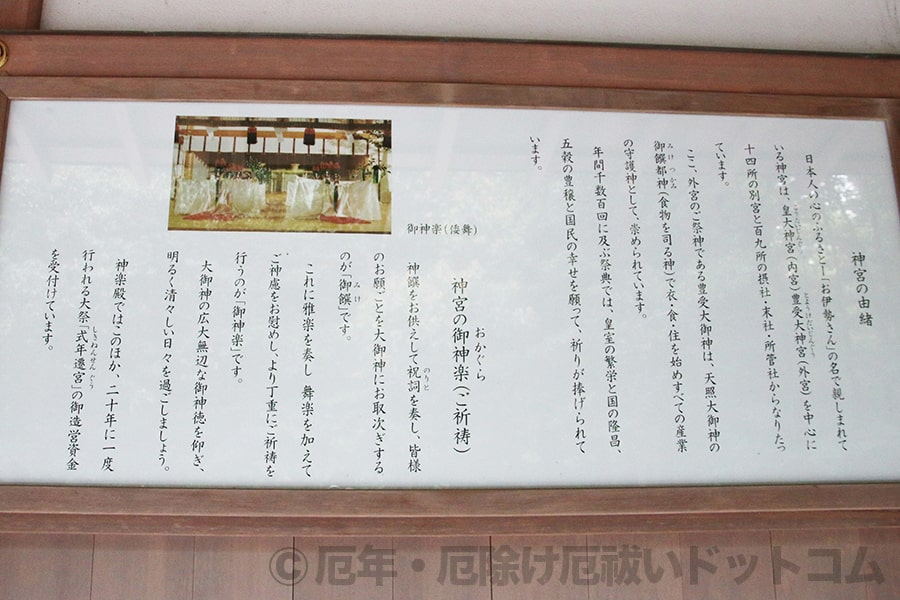 神宮の由緒
日本人の心のふるさと―「お伊勢さん」の名で親しまれて
いる神宮は、皇大神宮(内宮)豊受大神宮(外宮)を中心に
十四所の別宮と百九所の摂社・末社・所管社からなりたっ
ています。
ここ、外宮のご祭神である豊受大御神は、天照大御神の
御饌都神(食物を司る神)で衣・食・住を始めすべての産業
の守護神として、崇められています。
年間千数百回に及ぶ祭典では、皇室の繁栄と国の隆昌、
五穀の豊穣と国民の幸せを願って、祈りが捧げられて
います。
御神楽(倭舞)
おかぐら
神宮の御神楽(ご祈祷)
神饌をお供えして祝詞を奏し、皆様
のお願ごとを大御神にお取次ぎする
のが「御饌」です。
これに雅楽を奏し舞楽を加えて
ご神慮をお慰めし、より丁重にご祈祷を
行うのが「御神楽」です。
大御神の広大無辺な御神徳を仰ぎ、
明るく清々しい日々を過ごしましょう。
神楽殿ではこのほか、二十年に一度
行われる大祭「式年遷宮」の御造営資金
を受付けています。
© 厄年・厄除け厄祓いドットコム